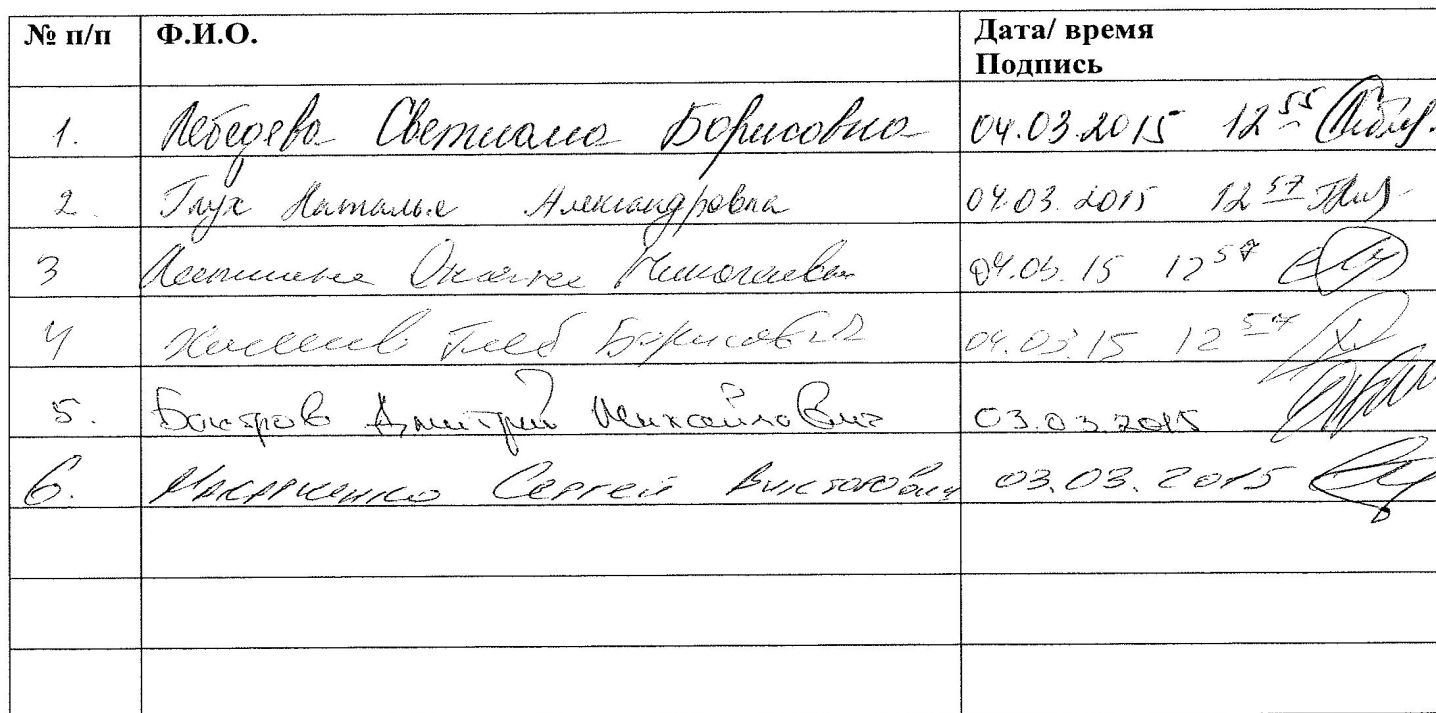 № п/п Ф.И.О. Дата/ время
Подпись
1. Лебедева Светлана Борисовна 04.03.2015 12 55
2. Глух Наталья Александровна 04.03.2015 12 57
3 Оксана Николаевна 04.03.15 12 57
4 Глеб Борисович 04.03.15 12 57
5. Дмитрий Михайлович 03.03.2015
6. Макаренко Сергей Викторович 03.03.2015